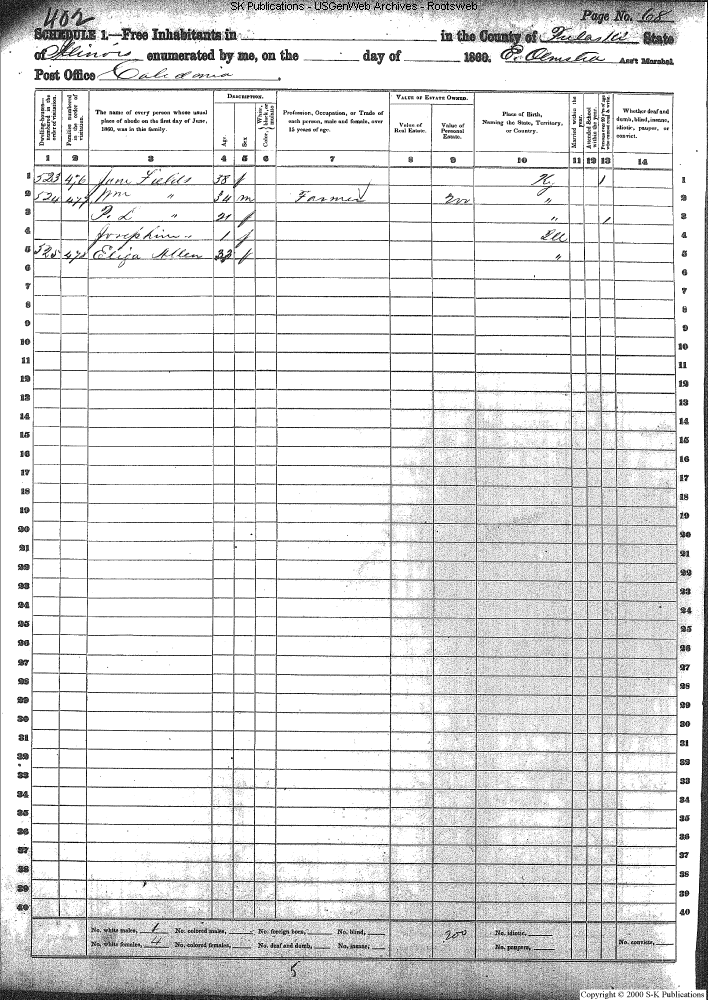 SK Publications - USGenWeb Archives - Rootsweb
402 Page No. 68
SCHEDULE 1.—Free Inhabitants in in the County of Pulaski State
of Illinois enumerated by me, on the day of 1860. E. Olmsted Ass't Marshal.
Post Office Caledonia.
Dwelling-houses—numbered in the order of visitation.
Families numbered in the order of visitation.
The name of every person whose usual place of abode on the first day of June, 1860, was in this family.
DESCRIPTION.
Age.
Sex
Color, White, black, or mulatto
Profession, Occupation, or Trade of each person, male and female, over 15 years of age.
VALUE OF ESTATE OWNED.
Value of Real Estate.
Value of Personal Estate.
Place of Birth, Naming the State, Territory, or Country.
Married within the year.
Attended School within the year.
Persons over 20 y'rs of age who cannot read and write.
Whether deaf and dumb, blind, insane, idiotic, pauper, or convict.
1 2 3 4 5 6 7 8 9 10 11 12 13 14
1 523 476 Jane Fields 38 f Ky 1 1
2 524 477 Wm " 34 m Farmer 200 " 2
3 P. L " 21 f " 1 3
4 Josephine " 1 f Ill 4
5 525 478 Eliza Allen 33 f " 5
6 6
7 7
8 8
9 9
10 10
11 11
12 12
13 13
14 14
15 15
16 16
17 17
18 18
19 19
20 20
21 21
22 22
23 23
24 24
25 25
26 26
27 27
28 28
29 29
30 30
31 31
32 32
33 33
34 34
35 35
36 36
37 37
38 38
39 39
40 40
No. white males, 1 No. colored males, No. foreign born, No. blind, 200 No. idiotic,
No. white females, 4 No. colored females, No. deaf and dumb, No. insane, No. paupers, No. convicts,
5
Copyright © 2000 S-K Publications